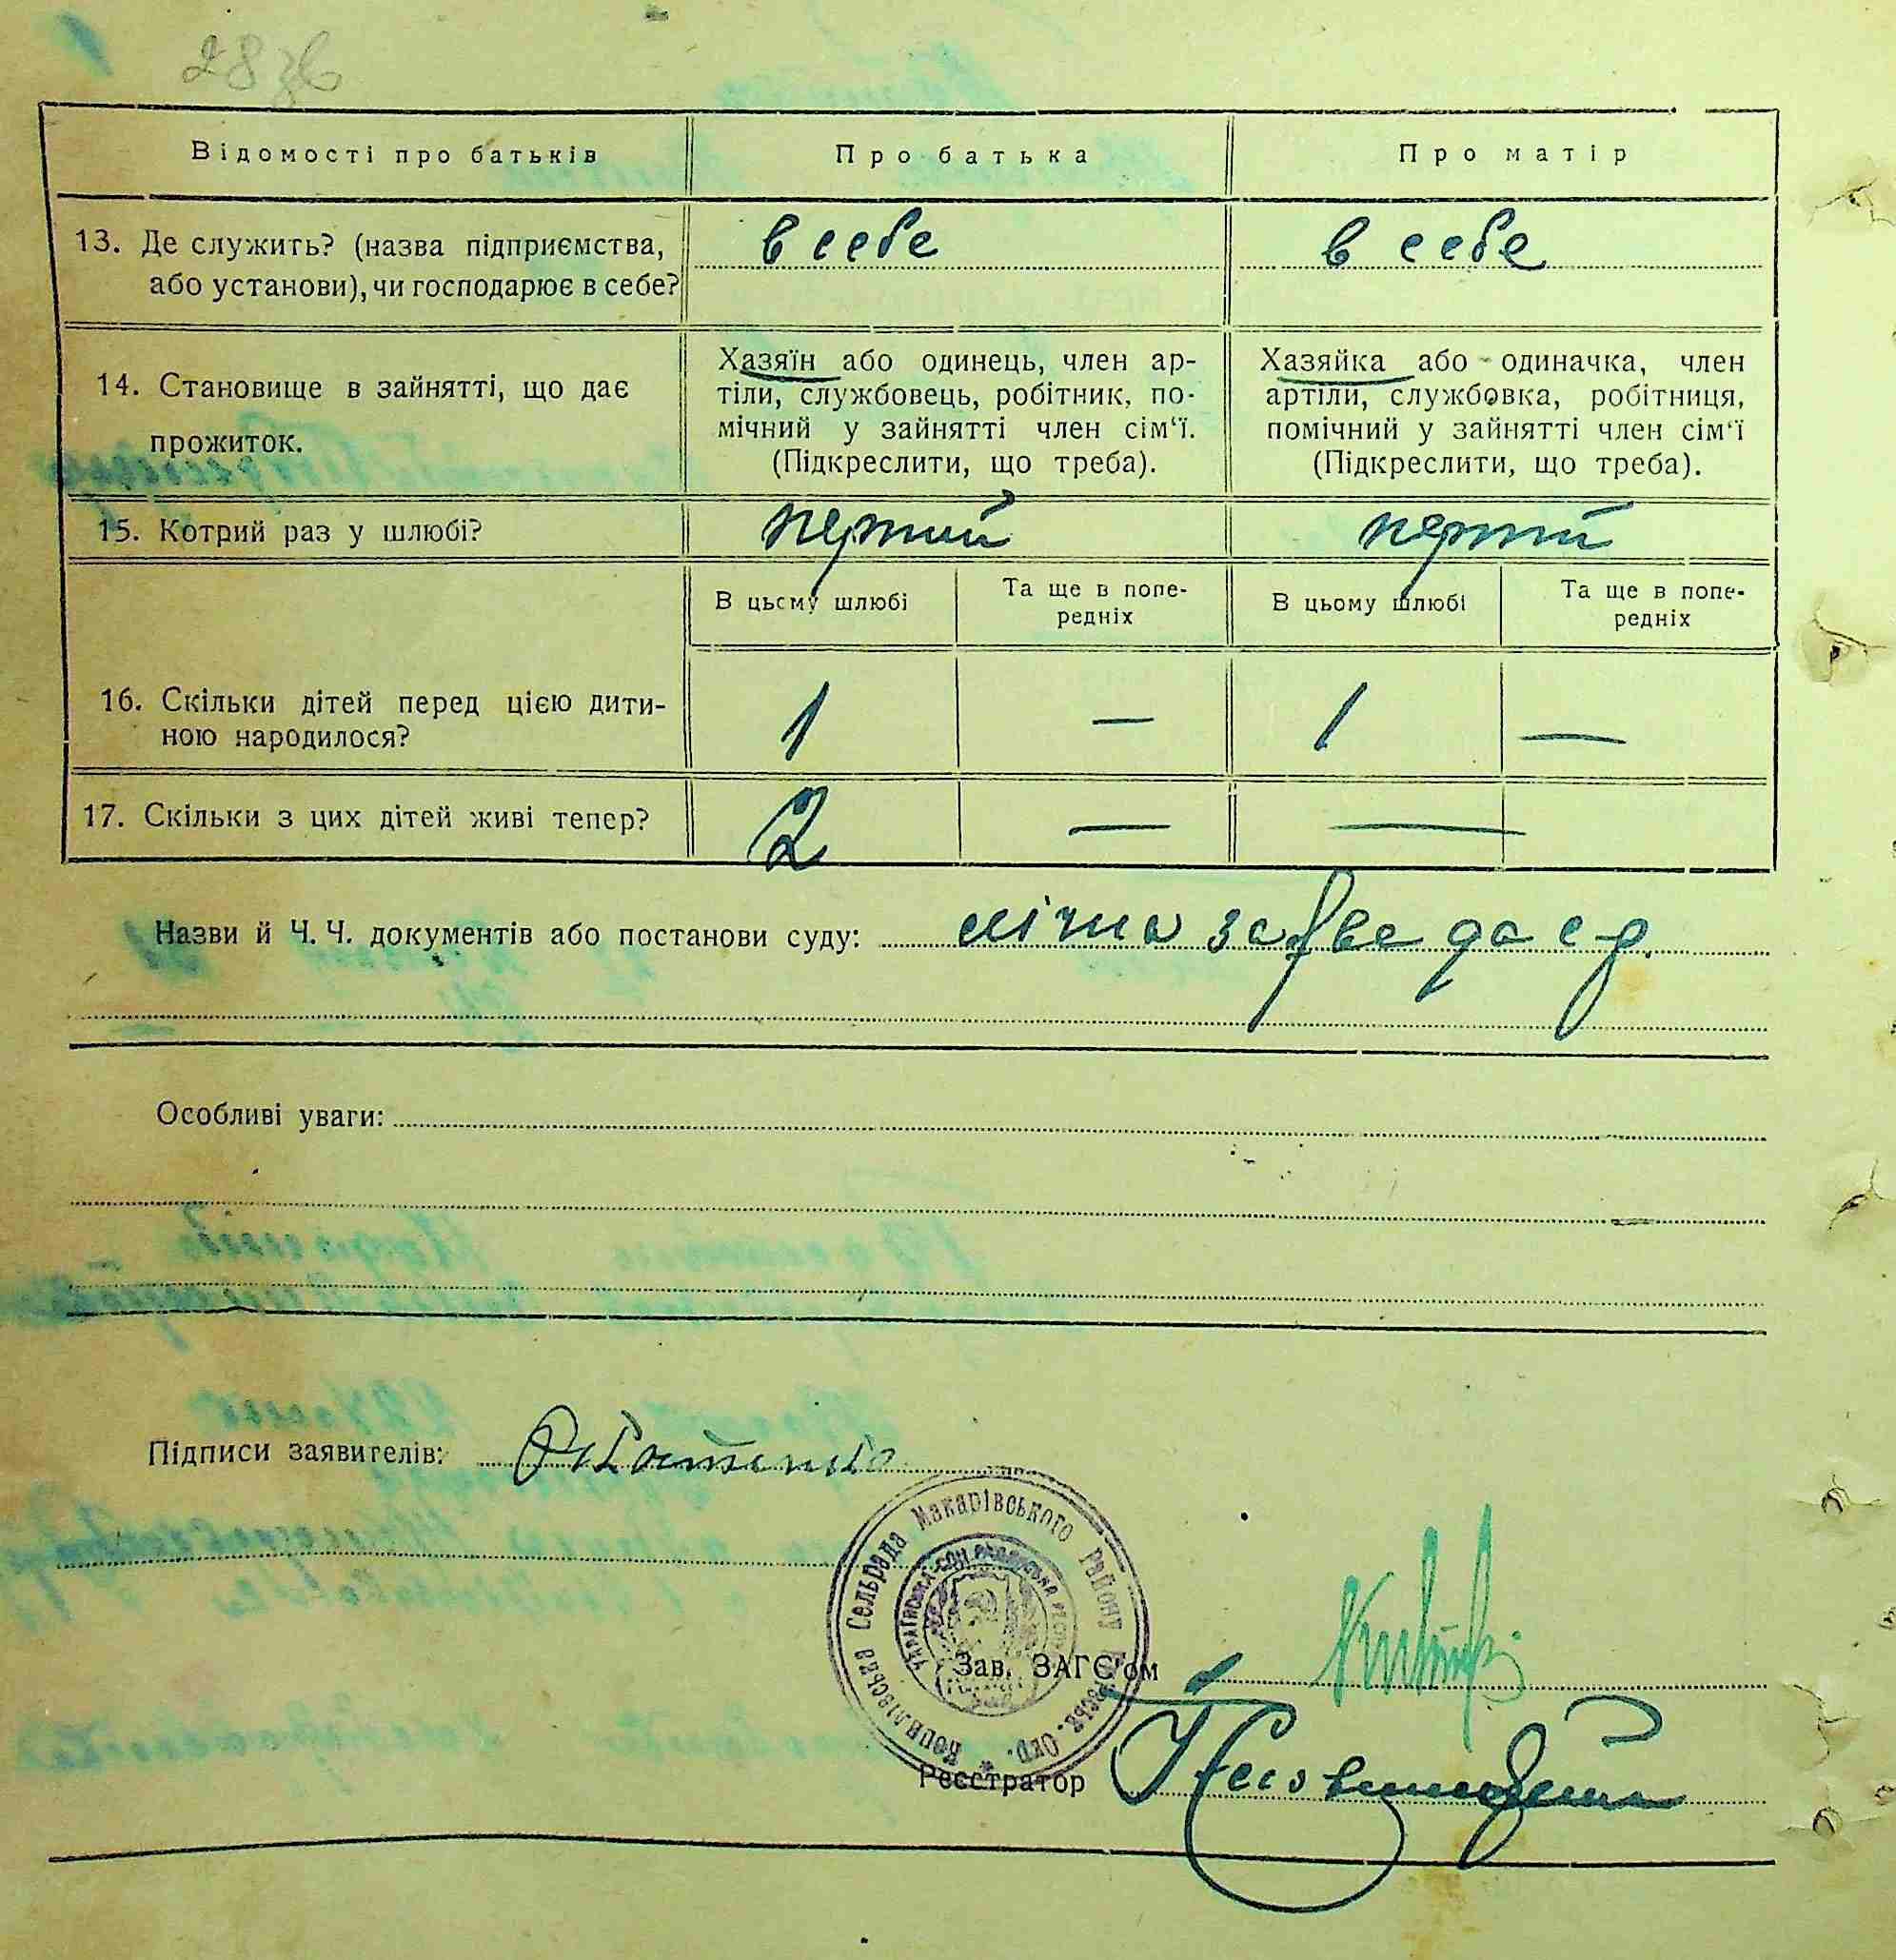 28 зв
Відомості про батьків
Про батька
Про матір
13. Де служить? (назва підприємства,
або установи), чи господарює в себе?
в себе
в себе
14. Становище в зайнятті, що дає
прожиток.
Хазяїн або одинець, член ар-
тіли, службовець, робітник, по-
мічний у зайнятті член сім‘ї.
(Підкреслити, що треба).
Хазяйка або одиначка, член
артіли, службовка, робітниця,
помічний у зайнятті член сім‘ї
(Підкреслити, що треба).
15. Котрий раз у шлюбі?
перший
перший
В цьому шлюбі
Та ще в попе-
редніх
В цьому шлюбі
Та ще в попе-
редніх
16. Скільки дітей перед цією дити-
ною народилося?
1
—
1
—
17. Скільки з цих дітей живі тепер?
2
—
—
Назви й Ч. Ч. документів або постанови суду:
Особливі уваги:
Підписи заявителів:
Сельрада Макарівського Району
Зав. ЗАГС'ом
Реєстратор